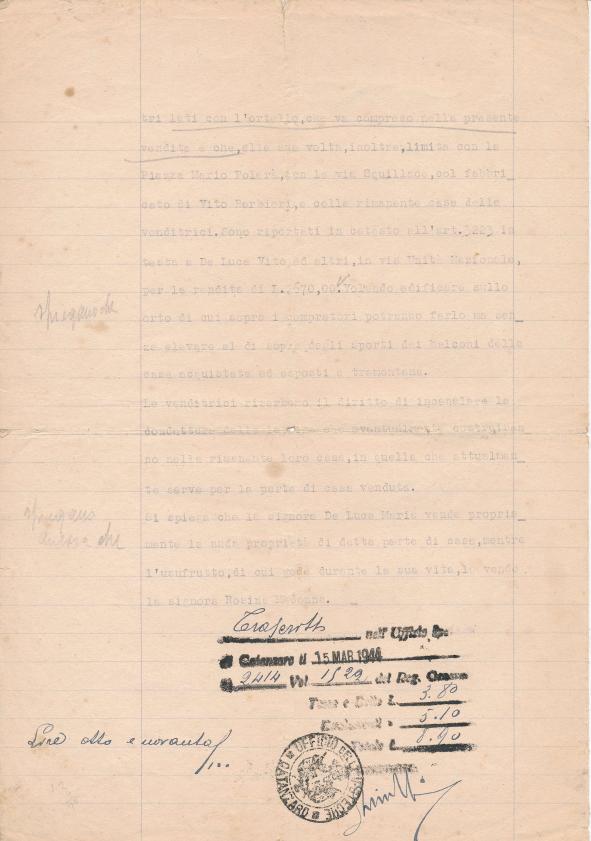 tri lati con l'ortello,che va compreso nella presente
vendita e che,alla sua volta,inoltre,limita con la
Piazza Mario Polerà,con la via Squillace,col fabbri_
cato di Vito Barbieri,e colla rimanente casa delle
venditrici.Sono riportati in catasto all'art.3223 in
testa a De Luca Vito,ed altri,in via Unità Nazionale,
per la rendita di L. 670,00.Volendo edificare sullo
orto di cui sopra i compratori potranno farlo ma sen_
za elevare al di sopra degli sporti dei balconi della
casa acquistata ed esposti a tramontana.
Le venditrici riserbano il diritto di incanalare le
condutture delle che eventualmente costruiran_
no nella rimanente loro casa,in quella che attualmen_
te serve per la parte di casa venduta.
Si spiega che la signora De Luca Maria vende propria_
mente la nuda proprietà di detta parte di casa,mentre
l'usufrutto,di cui gode durante la sua vita,lo vende
la signora Rosina Madonna.
Spiegano che
Spiegano
che
Trascritto nell'Ufficio Ipo
di Catanzaro il 15 MAR 1944
al 2414 Vol 1522 del Reg. Genera
Tassa e Bollo L. 3.80
Emolumenti » 5.10
Totale L. 8.90
Lire otto e novanta
UFFICIO DELLE IPOTECHE CATANZARO